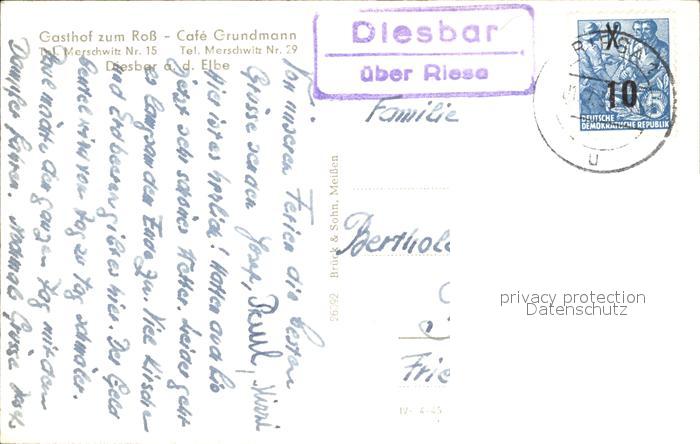 Gasthof zum Roß - Café Grundmann
Tel. Merschwitz Nr. 15 Tel. Merschwitz Nr. 29
Diesbar a. d. Elbe
Diesbar
über Riesa
RIESA 2
X
10
5
DEUTSCHE
DEMOKRATISCHE REPUBLIK
u
Von unseren Ferien die besten
Grüße senden Josef, Paul,
Hier ist es herrlich! Hatten auch bis
jetzt sehr schönes Wetter. Leider geht
es langsam dem Ende zu. Viel Kirschen
und Erdbeeren gibt es hier. Der Geld
beutel wird von Tag zu Tag schmäler.
Paul möchte den ganzen Tag mit dem
Dampfer fahren. Nochmal Grüße
26292 Brück & Sohn, Meißen
Familie
Berthol
Frie
IV-4-45
privacy protection
Datenschutz